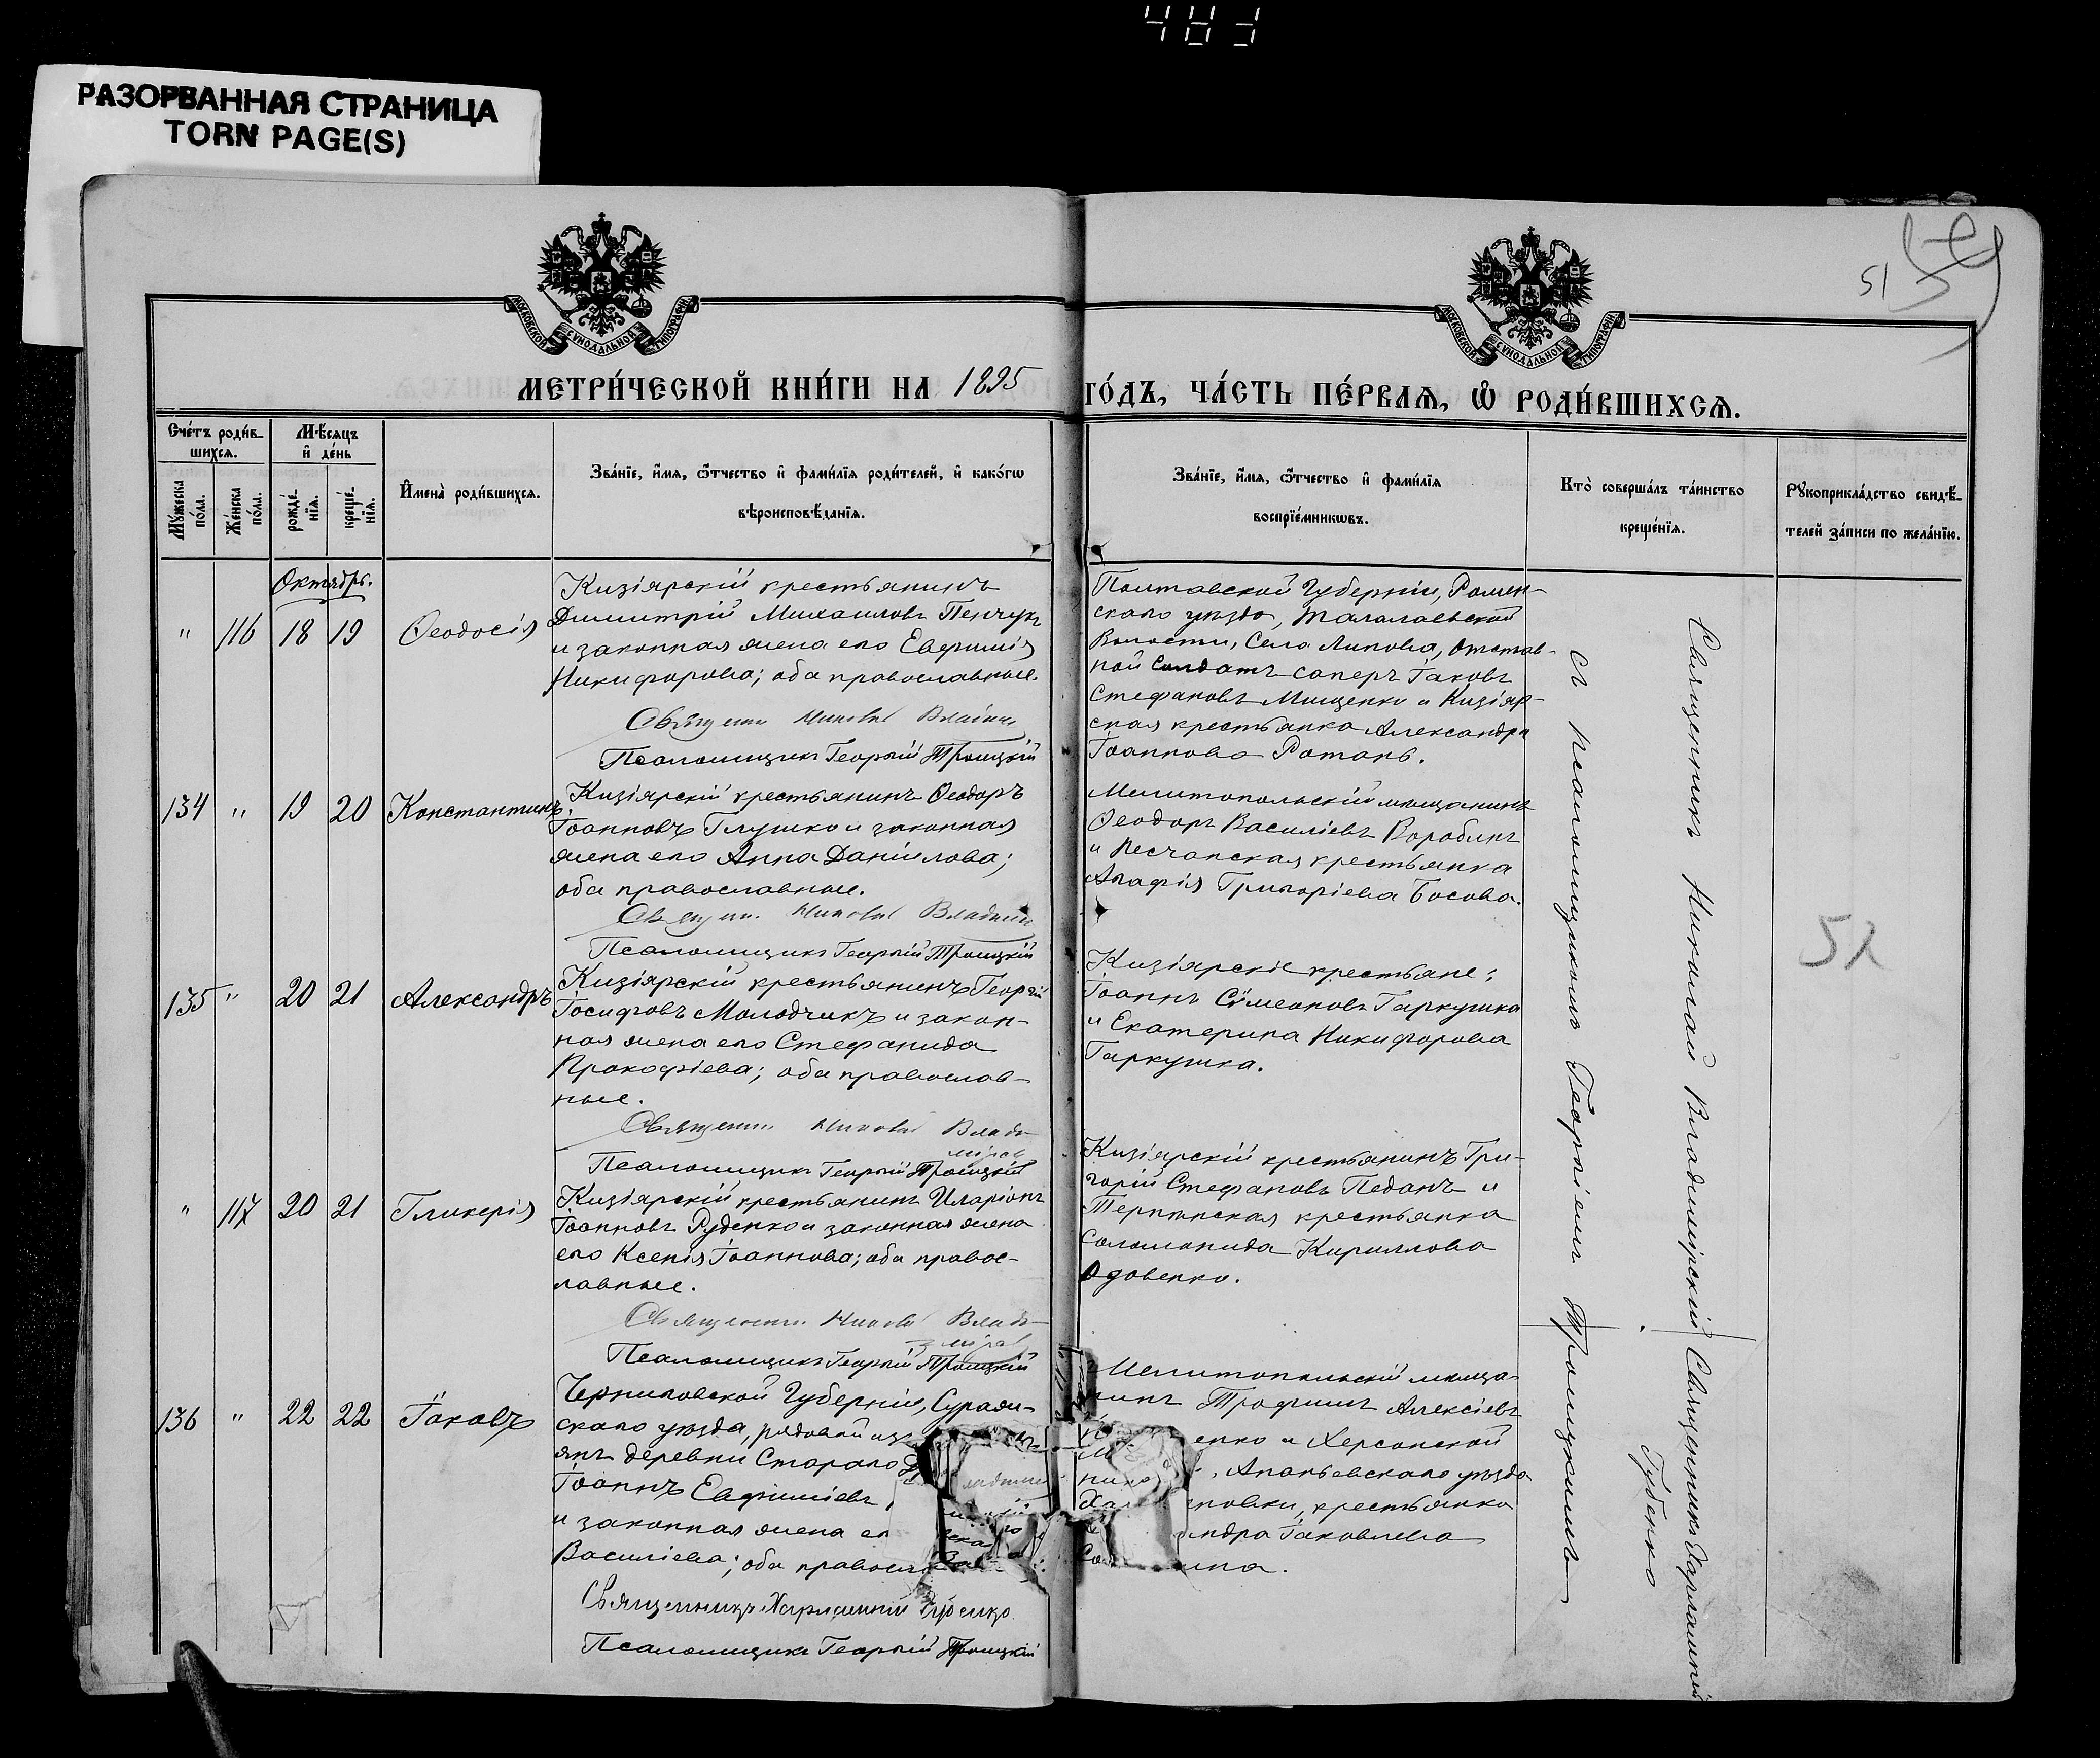 483
РАЗОРВАННАЯ СТРАНИЦА
TORN PAGE(S)
51
МОСКОВСКОЙ СУНОДАЛЬНОЙ ТИПОГРАФІИ
МОСКОВСКОЙ СУНОДАЛЬНОЙ ТИПОГРАФІИ
МЕТРИ́ЧЕСКОЙ КНИ́ГИ НА 1895 ГО́ДЪ, ЧА́СТЬ ПЕ́РВАѦ, Ѽ РОДИ́ВШИХСѦ.
Сче́тъ роди́в-
шихсѧ.
Му́жеска по́ла.
Же́нска по́ла.
Мѣ́сѧцъ
и҆ де́нь
рожде́-
нїѧ.
креще́-
нїѧ.
И҆мена̀ роди́вшихсѧ.
Зва́нїе, и҆́мѧ, ѻ҆́тчество и҆ фами́лїѧ роди́телей, и҆ како́гѡ
вѣроисповѣ́данїѧ.
Зва́нїе, и҆́мѧ, ѻ҆́тчество и҆ фами́лїѧ
воспрїе́мникѡвъ.
Кто̀ соверша́лъ та́инство
креще́нїѧ.
Рꙋкоприкла́дство свидѣ́-
телей за́писи по жела́нїю.
Октябрь.
" 116 18 19 Ѳеодосія
Кизіярскій крестьянинъ
Димитрій Михаиловъ Пенчукъ
и законная жена его Евфимія
Никифорова; оба православные.
Священн. Николай
Псаломщикъ Георгій Троицкій
Полтавской Губерніи, Ромен-
скаго уѣзда, Талалаевской
Волости, Села Липова, отстав-
ной Солдатъ саперъ Іаковъ
Стефановъ Мищенко и Кизіяр-
ская крестьянка Александра
Іоаннова Ротань.
134 " 19 20 Константинъ
Кизіярскій крестьянинъ Ѳеодоръ
Іоанновъ Глушко и законная
жена его Анна Даніилова;
оба православные.
Священ. Николай Владимі
Псаломщикъ Георгій Троицкій
Мелитопольскій мѣщанинъ
Ѳеодоръ Василіевъ Воробьинъ
и Песчанская крестьянка
Агафія Григоріева Босова.
135 " 20 21 Александръ
Кизіярскій крестьянинъ Георгій
Іосифовъ Молодчикъ и закон-
ная жена его Стефанида
Прокофіева; оба православ-
ные.
Священн. Николай Влади-
міров
Псаломщикъ Георгій Троицкій
Кизіярскіе крестьяне:
Іоаннъ Сѵмеоновъ Гаркушка
и Екатерина Никифорова
Гаркушка.
52
" 117 20 21 Гликерія
Кизіярскій крестьянинъ Иларіонъ
Іоанновъ Руденко и законная жена
его Ксенія Іоаннова; оба правос-
лавные.
Священн. Николай Влади-
Псаломщикъ Георгій Троицкій
Кизіярскій крестьянинъ Гри-
горій Стефановъ Педанъ и
Терпѣнская крестьянка
Соломонида Кириллова
136 " 22 22 Іаковъ
Черниговской Губерніи, Суражи-
скаго уѣзда, рядовой изъ
янъ деревни Стараго
Іоаннъ Евфиміевъ
и законная жена ег
Василіева; оба правосл
Священникъ Харлампій Губенко
Псаломщикъ Георгій Троицкій
Мелитопольскій мѣща-
нинъ Трофимъ Алексіевъ
енко и Херсонской
, Ананьевскаго уѣзда
новки, крестьянка
ндра Іаковлева
ина.
Священникъ Николай Владимірскій
съ псаломщикомъ Георгіемъ Троицкимъ
Священникъ Харлампій
Губенко